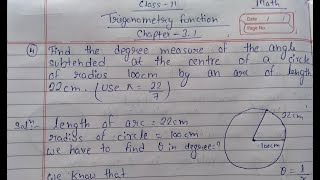 Class-11
Math
Trigonometry function
Date / /
Page No.
Chapter-3.1
4) Find the degree measure of the angle
subtended at the centre of a circle
of radius 100cm by an arc of length
22cm. (use π = 22/7)
Solⁿ
length of arc = 22cm
22cm
radius of circle = 100cm
100cm
we have to find θ in degree=?
we know that
θ = l